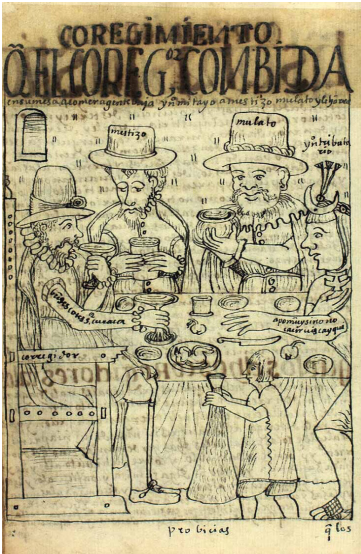 COREGIMIENTO
Q̃ EL COREG.OR COMBIDA
en su mesa a comer a gente baja yn̊ mitayo a mestizo mulato y le honra
mestizo
mulato
yn̊ tributa
rio
apo muy sino no
ca ciruiscayqui
corregidor
probincias
q̃ los